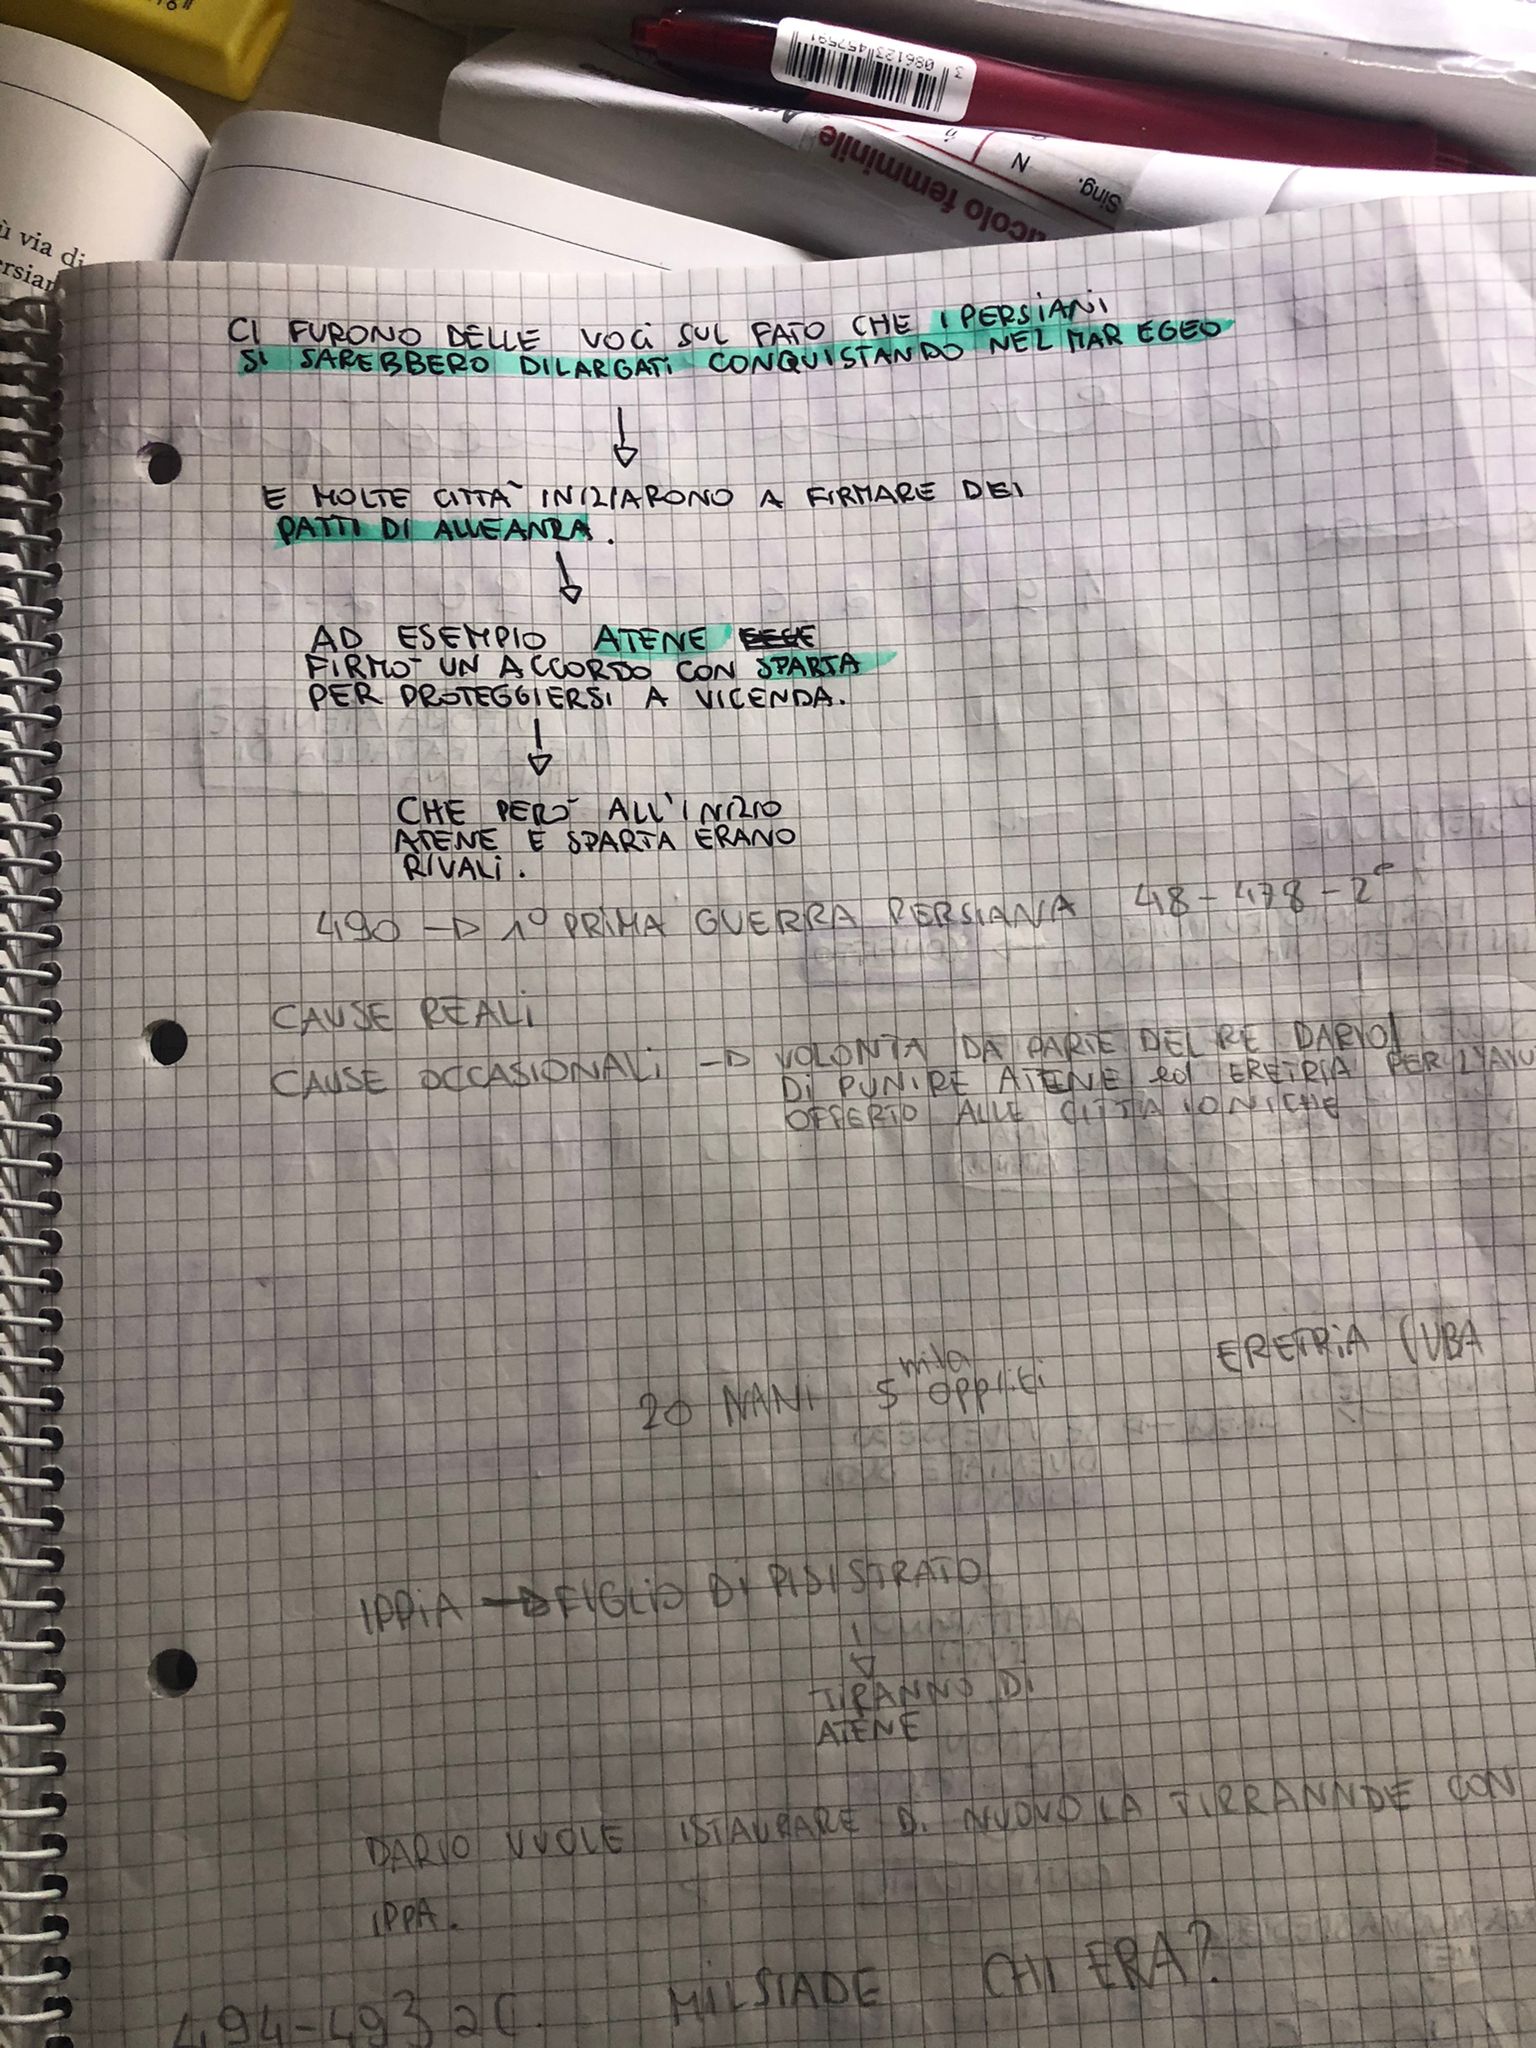 3 086123 457591
Sing.
N
icolo femminile
ù via di
ersian
CI FURONO DELLE VOCI SUL FATO CHE I PERSIANI
SI SAREBBERO DILARGATI CONQUISTANDO NEL MAR EGEO
E MOLTE CITTÀ INIZIARONO A FIRMARE DEI
PATTI DI ALLEANZA.
AD ESEMPIO ATENE
FIRMÒ UN ACCORDO CON SPARTA
PER PROTEGGIERSI A VICENDA.
CHE PERÒ ALL'INIZIO
ATENE E SPARTA ERANO
RIVALI.
490 → 1° PRIMA GUERRA PERSIANA 48-478-2°
CAUSE REALI
CAUSE OCCASIONALI → VOLONTA DA PARTE DEL RE DARIO
DI PUNIRE ATENE ed ERETRIA PER L'AIU
OFFERTO ALLE CITTA IONICHE
ERETRIA
mila
20 NANI 5 OPPLITI
IPPIA → FIGLIO DI PISISTRATO
TIRANNO DI
ATENE
DARIO VUOLE ISTAURARE DI NUOVO LA TIRRANNDE CON
IPPA.
MILSIADE CHI ERA?
494-493 a C.